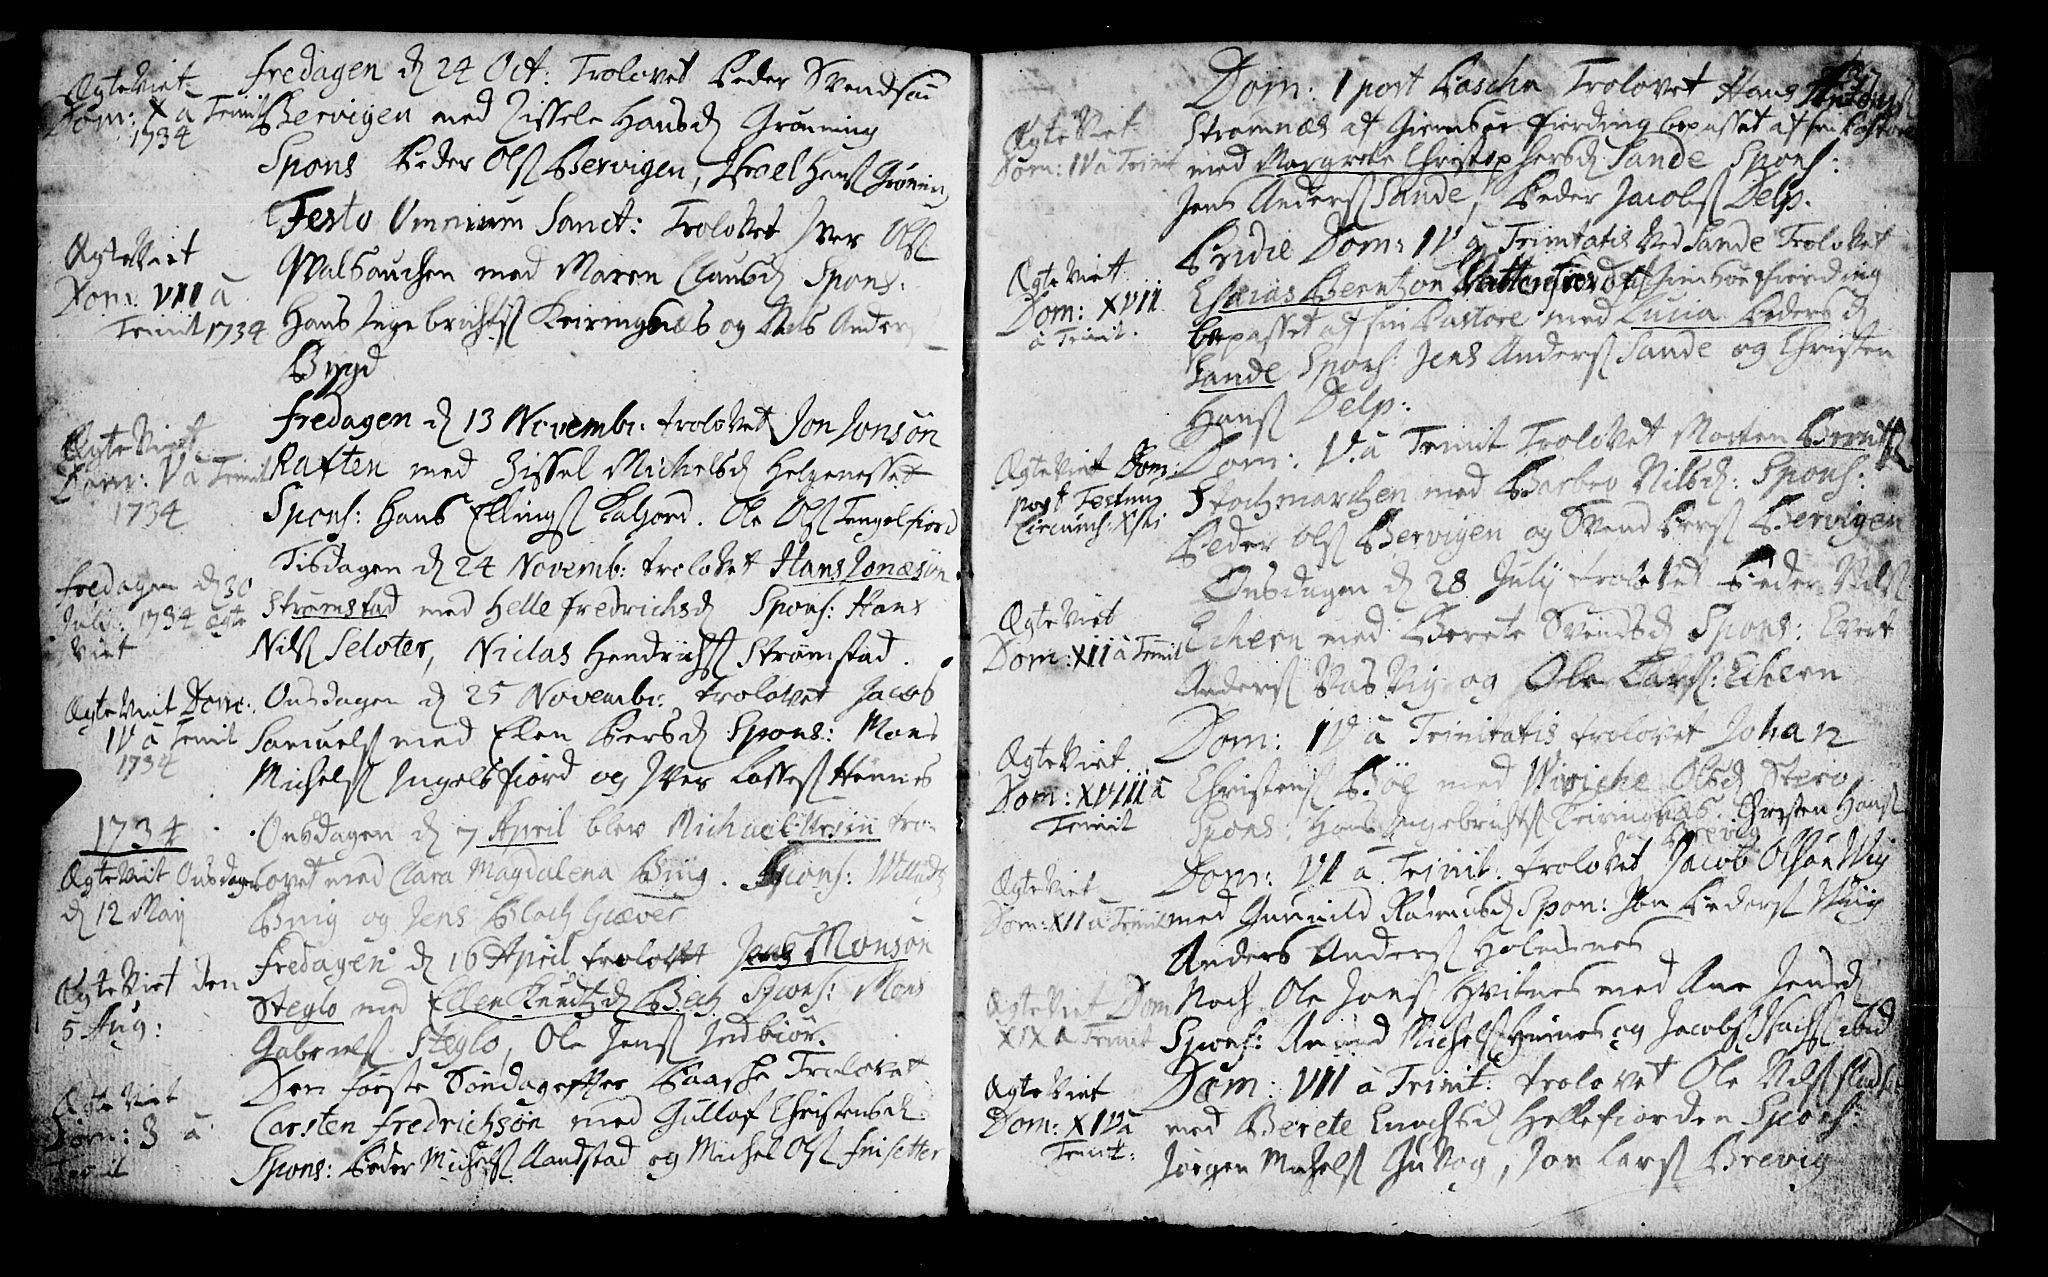 Ægte Viet
Dom: X a Trinit
1734
fredagen d 24 Oct: Trolovet Peder Svendsøn
Bervigen med Zissele Hansd Grønning
Spons Peder Ols Bervigen, Hans Grønning
Ægte Viet
Dom: VII a
Trinit 1734
Festo Omnium Sanct: Trolovet Iver Ols
med Maren Clausd Spons:
Hans Ingebrichts Keiringnæs og Nils Anders
Bygd
Ægte Viet
Dom: V a Trinit
1734
fredagen d 13 Novembr: trolovet Jon Jonsøn
Raften med Zissel Michelsd Helgenesset
Spons: Hans Ellings Kaljord. Ole Ols Tengelfiord
fredagen d 30
Juli 1734 ægte
Viet
Tisdagen d 24 Novemb: trolovet Hans Jonæsøn
Strømstad med Helle fredrichsd Spons: Hans
Nils Seloter, Niclas Hendrichs Strømstad.
Ægte Viet Dom:
IV a Trinit
1734
Onsdagen d 25 Novembr: trolovet Jacob
Samuels med Elen Persd Spons: Mons
Michels Ingelsfiord og Iver Lasses Hennes
1734
Ægte Viet Onsdagen
d 12 Maij
Onsdagen d 7 April blev Michael Ursin tro-
lovet med Clara Magdalena Bing. Spons:
og Jens Bloch Giæver
Ægte Viet den
5 Aug:
Fredagen d 16 April trolovet Jens Monsøn
Steglo med Ellen Knudtzd Bech Spons: Mons
Gabriels Steglo, Ole Jens Indbiør.
Ægte Viet
Dom: 3 a
Trinit
Den første Søndag efter Paaske Trolovet
Carsten fredrichsøn med Gullof Christensd
Spons: Peder Michels Aandstad og Michel Ols finsetter
Ægte Viet
Dom: IV a Trinit
Dom: 1 post Pascha Trolovet Hans
Strømnæs af Giemsøe fierding bepasset af sin Pastore
med Margrete Christophersd Sande Spons:
Jens Anders Sande, Peder Jacobs Delp.
Ægte Viet
Dom: XVII
a Trinit.
Pridie Dom: IV a Trinitatis ved Sande Trolovet
Esaias Berntzon af Giemsøe fierding
bepasset af sin Pastore med Lucia Pedersd
Sande Spons: Jens Anders Sande og Christen
Hans Delp:
Ægte Viet Dom:
post Festum
Circumcis: Xsti
Dom: V. a Trinit Trolovet Morten Bernts
Stochmarchen med Barbro Nilsd: Spons:
Peder Ols Bervigen og Svend Pers Bervigen
Ægte Viet
Dom: XII a Trinit
Onsdagen d 28 Julij trolovet Peder Nils
Echeen med Berete Svendsd Spons: Evert
Anders Vasvig og Ole Lars: Echeen
Ægte Viet
Dom: XVIII a
Trinit
Dom: IV a Trinitatis trolovet Johan
Christens Bøe med Wiviche Olsd Stero
Spons: Hans Ingebrichts Keiringnæs. Christen Hans
Brevig
Ægte Viet
Dom: XII a Trinit
Dom: VI a Trinit. trolovet Jacob Olsøn Wiig
med Gunnild Rasmusd Spon: Jon Peders Wiig
Anders Anders Holmsnes
Ægte Viet Dom
XIX a Trinit
Noch Ole Jons Hvitnes med Ane Jensd
Spons: Amund Michels Hennes og Jacob Isachs ibid
Ægte Viet
Dom: XIV a
Trinit:
Dom: VII a Trinit: trolovet Ole Nils
med Berete Enochsd Hellefiorden Spons:
Jørgen Michels Guvog, Jon Lars Brevig